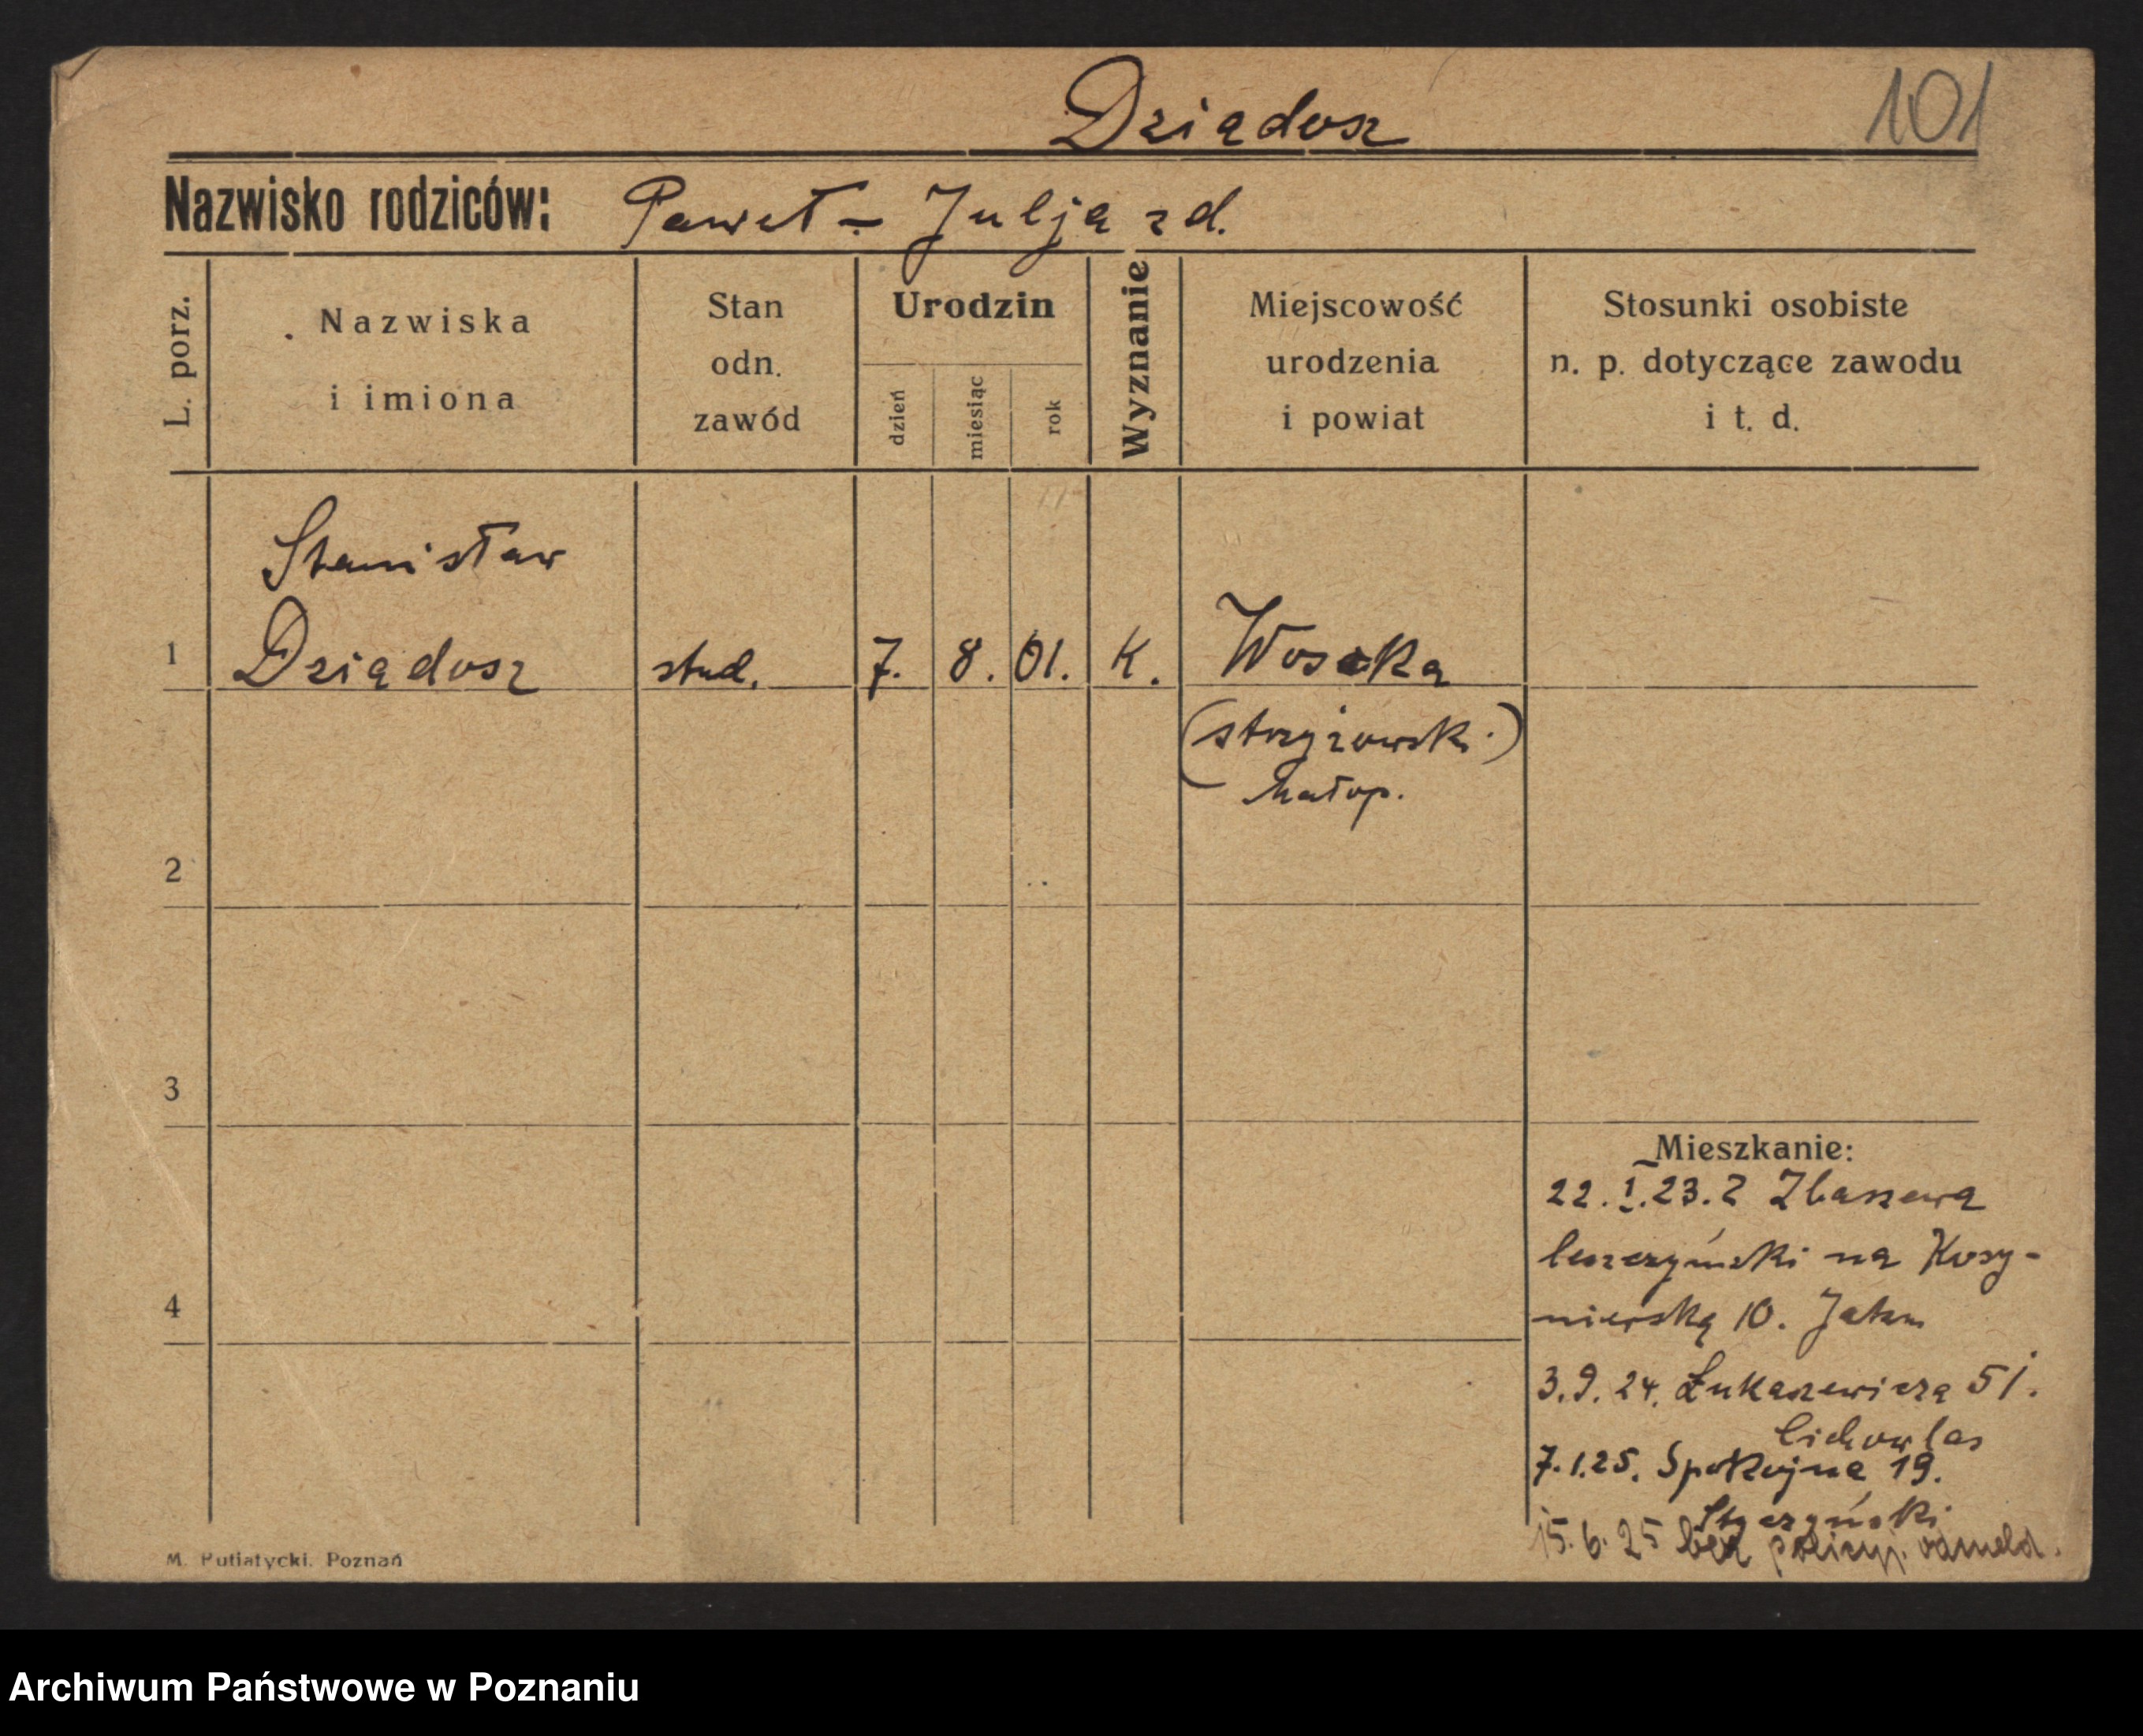 Dziadosz 101
Nazwisko rodziców: Paweł - Julja zd.
L. porz.
Nazwiska
i imiona
Stan
odn.
zawód
Urodzin
dzień
miesiąc
rok
Wyznanie
Miejscowość
urodzenia
i powiat
Stosunki osobiste
n. p. dotyczące zawodu
i t. d.
Stanisław
1 Dziadosz stud. 7. 8. 01. K.
(strzyżowski.)
Małop.
2
3
4
Mieszkanie:
22.I.23. z Zbaszewa
leszczyński na Kosy-
nierską 10.
3.9.24. Łukaszewicza 51.
Cichowlas
7.1.25. Spokojna 19.
15.6.25 bez policyj. odmeld.
M. Putiatycki. Poznań
Archiwum Państwowe w Poznaniu